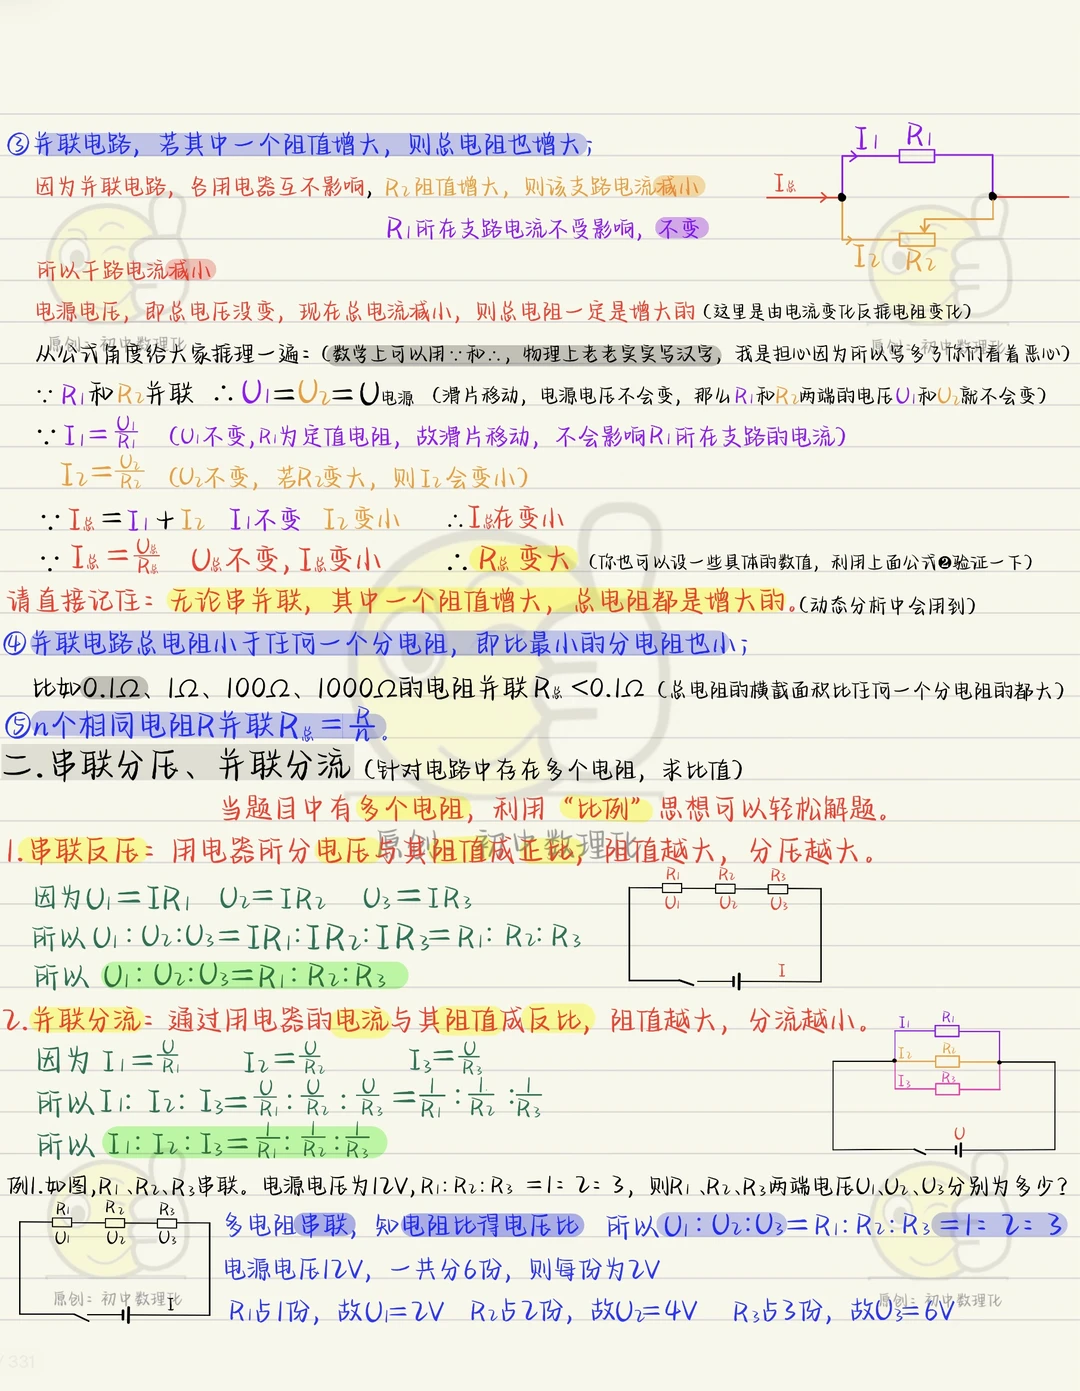 ③并联电路，若其中一个阻值增大，则总电阻也增大；
因为并联电路，各用电器互不影响，R₂阻值增大，则该支路电流减小
R₁所在支路电流不受影响，不变
所以干路电流减小
I总 I₁ R₁ I₂ R₂
电源电压，即总电压没变，现在总电流减小，则总电阻一定是增大的（这里是由电流变化反推电阻变化）
从公式角度给大家推理一遍：（数学上可以用∵和∴，物理上老老实实写汉字，我是担心因为所以写多了你们看着恶心）
∵R₁和R₂并联 ∴U₁=U₂=U电源（滑片移动，电源电压不会变，那么R₁和R₂两端的电压U₁和U₂就不会变）
∵I₁=U₁/R₁（U₁不变，R₁为定值电阻，故滑片移动，不会影响R₁所在支路的电流）
I₂=U₂/R₂（U₂不变，若R₂变大，则I₂会变小）
∵I总=I₁+I₂ I₁不变 I₂变小 ∴I总在变小
∵I总=U总/R总 U总不变，I总变小 ∴R总变大（你也可以设一些具体的数值，利用上面公式❷验证一下）
请直接记住：无论串并联，其中一个阻值增大，总电阻都是增大的。（动态分析中会用到）
④并联电路总电阻小于任何一个分电阻，即比最小的分电阻也小；
比如0.1Ω、1Ω、100Ω、1000Ω的电阻并联R总<0.1Ω（总电阻的横截面积比任何一个分电阻的都大）
⑤n个相同电阻R并联R总=R/n。
二.串联分压、并联分流（针对电路中存在多个电阻，求比值）
当题目中有多个电阻，利用“比例”思想可以轻松解题。
1.串联反压：用电器所分电压与其阻值成正比，阻值越大，分压越大。
因为U₁=IR₁ U₂=IR₂ U₃=IR₃
所以U₁:U₂:U₃=IR₁:IR₂:IR₃=R₁:R₂:R₃
所以U₁:U₂:U₃=R₁:R₂:R₃
R₁ R₂ R₃
U₁ U₂ U₃
I
2.并联分流：通过用电器的电流与其阻值成反比，阻值越大，分流越小。
因为I₁=U/R₁ I₂=U/R₂ I₃=U/R₃
所以I₁:I₂:I₃=U/R₁:U/R₂:U/R₃=1/R₁:1/R₂:1/R₃
所以I₁:I₂:I₃=1/R₁:1/R₂:1/R₃
I₁ R₁
I₂ R₂
I₃ R₃
U
例1.如图，R₁、R₂、R₃串联。电源电压为12V，R₁:R₂:R₃=1:2:3，则R₁、R₂、R₃两端电压U₁、U₂、U₃分别为多少？
R₁ R₂ R₃
U₁ U₂ U₃
I
多电阻串联，知电阻比得电压比 所以U₁:U₂:U₃=R₁:R₂:R₃=1:2:3
电源电压12V，一共分6份，则每份为2V
R₁占1份，故U₁=2V R₂占2份，故U₂=4V R₃占3份，故U₃=6V
原创：初中数理化
原创：初中数理化
原创：初中数理化
原创：初中数理化
原创：初中数理化
/331